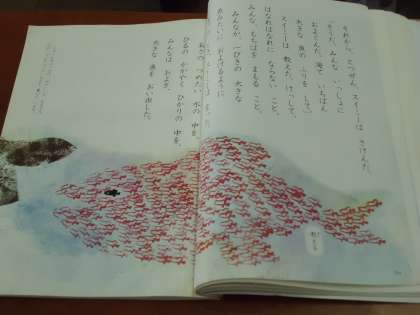 それから、とつぜん、スイミーは さけんだ。
「そうだ。みんな いっしょに
およぐんだ。海で いちばん
大きな 魚の ふりを して。」
スイミーは 教えた。けっして、
はなればなれに ならない こと。
みんな、もちばを まもる こと。
みんなが、一ぴきの 大きな
魚みたいに およげるように
あさの つめたい 水の 中を、
ひるの かがやく ひかりの 中を、
みんなは およぎ、
大きな 魚を おい出した。